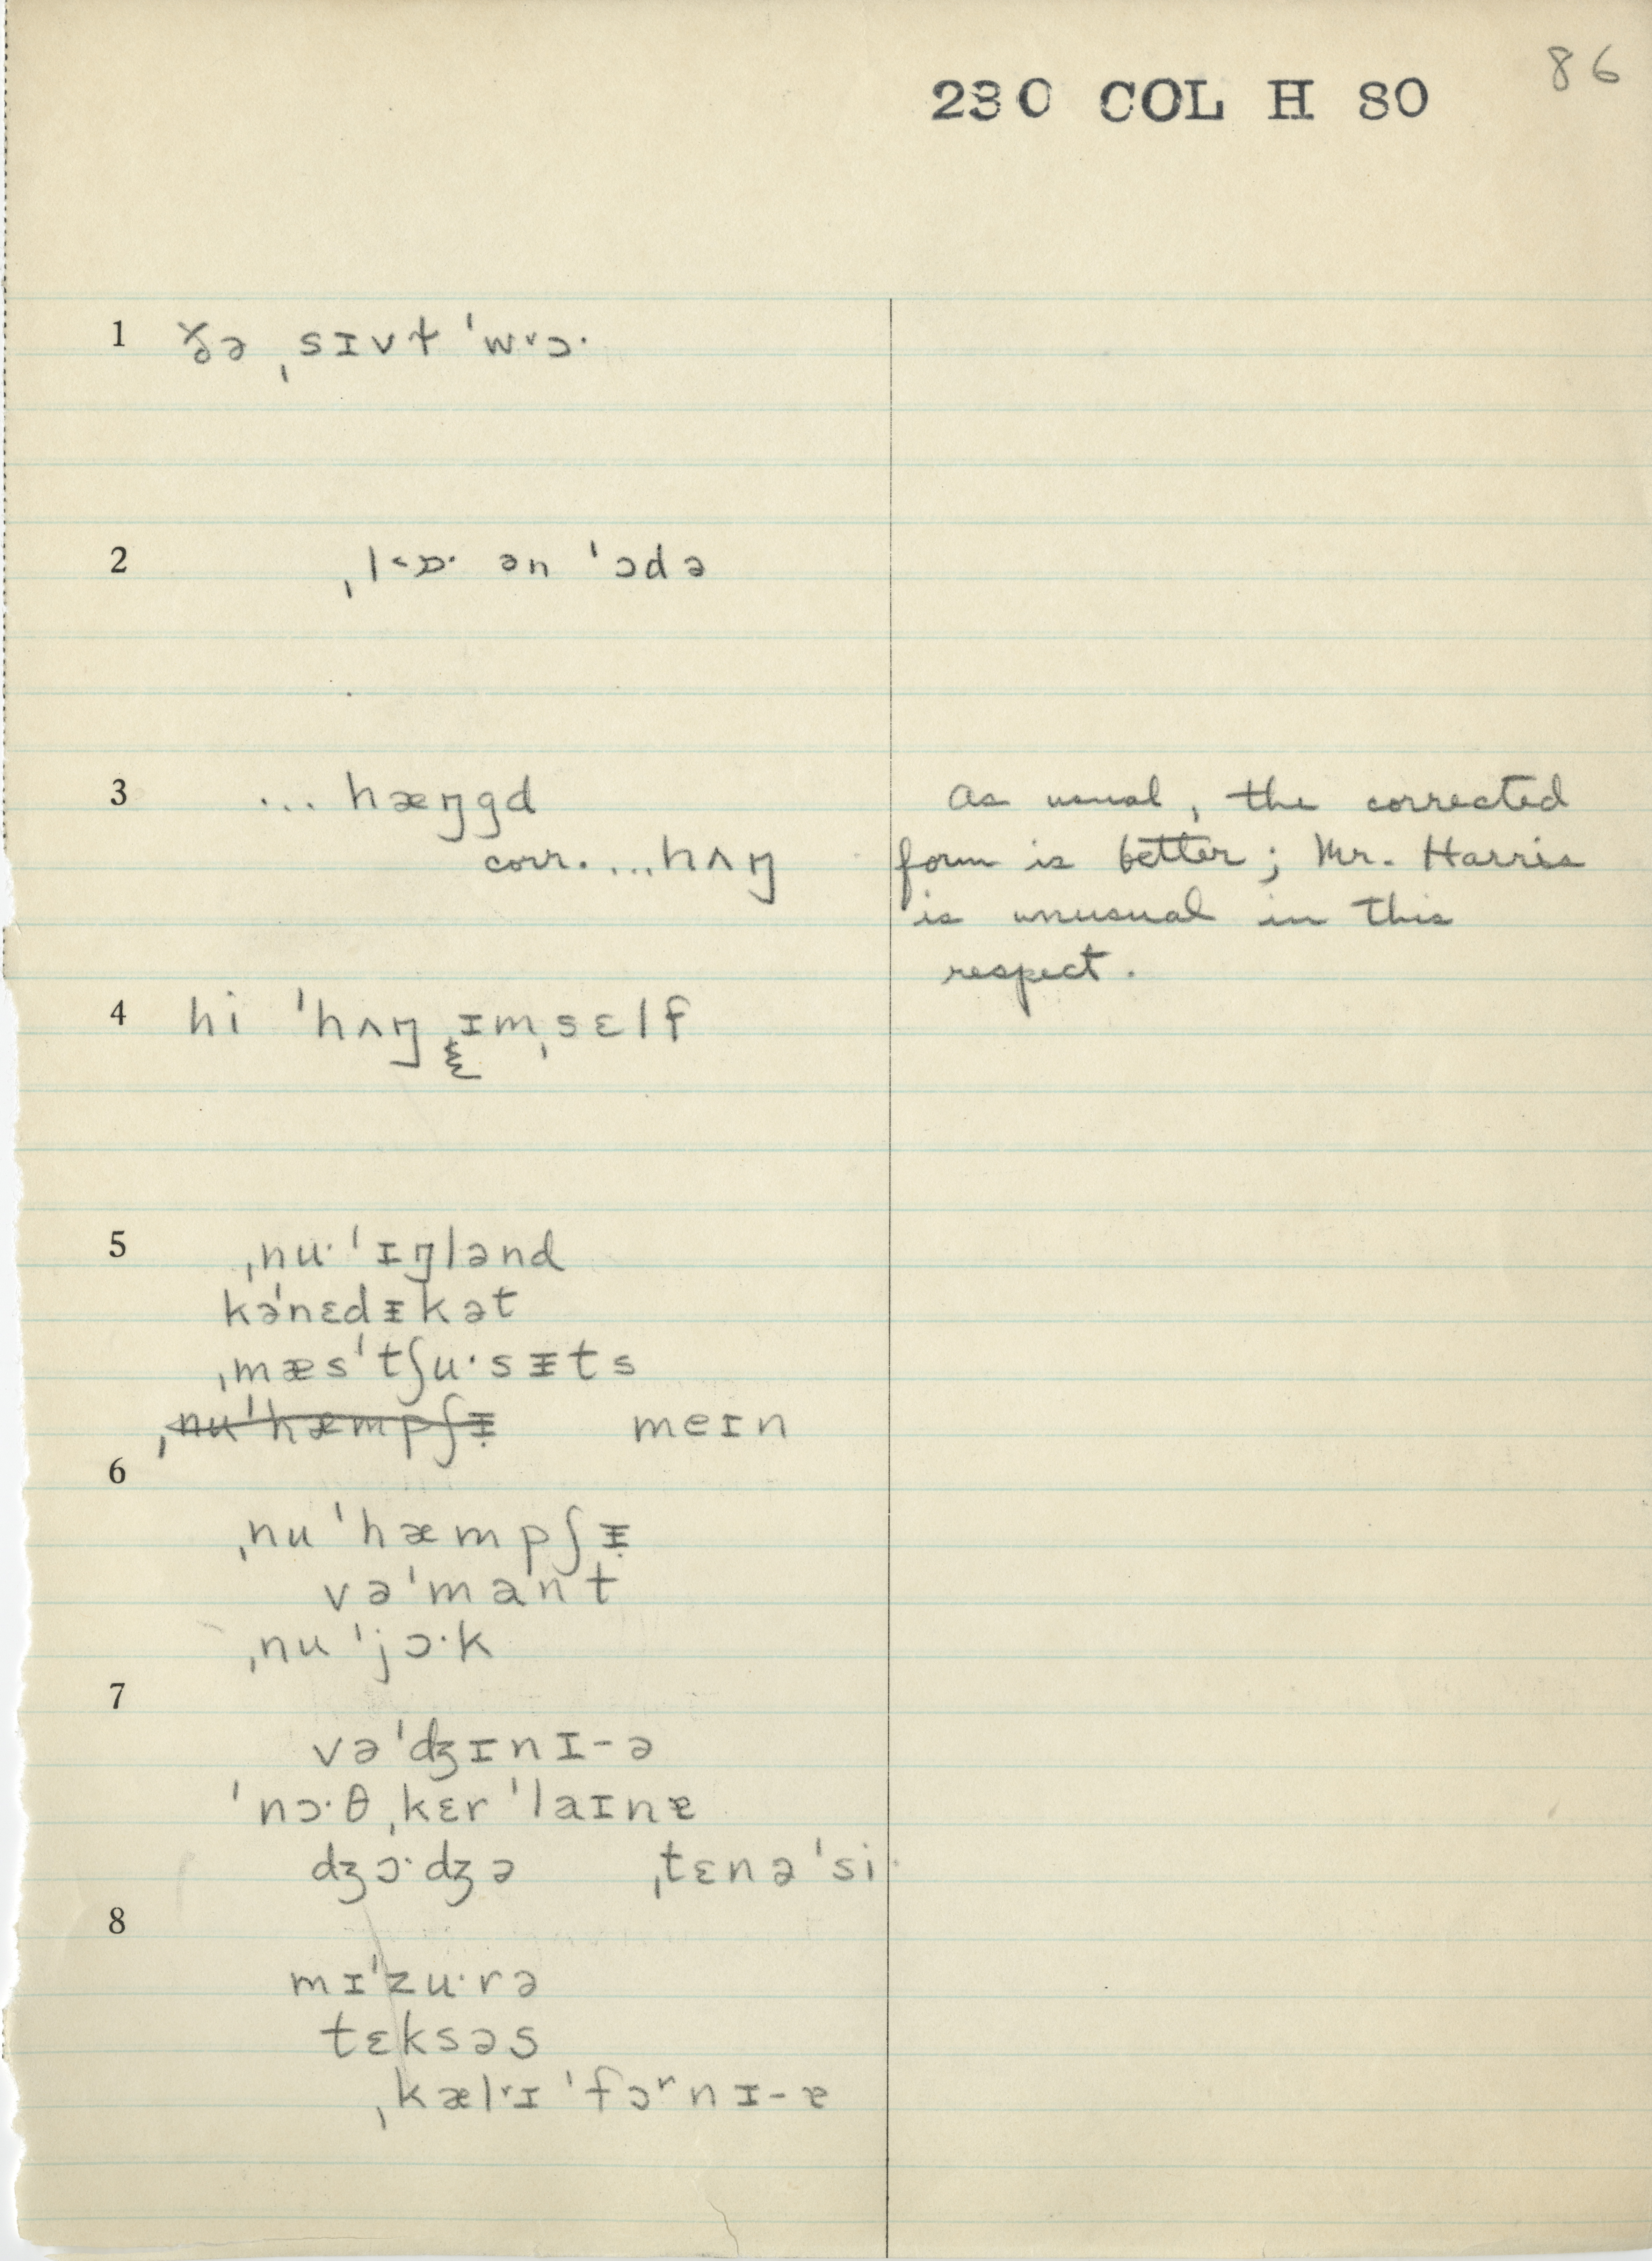 86
230 COL H 80
1 ðə ˌsɪvɫ ˈw˅ɔ·
2 ˌl˂ɒ· ən ˈɔdə
3 ... hæŋgd
corr. ...hʌŋ
As usual, the corrected
form is better; Mr. Harris
is unusual in this
respect.
4 hi ˈhʌŋ ɪmˌsɛlf
5 ˌnu·ˈɪŋlənd
kəˈnɛdᵻkət
ˌmæsˈtʃu·sᵻts
ˌnuˈhæmpʃᵻ̣ meɪn
6
ˌnuˈhæmpʃᵻ̣
vəˈmant
ˌnuˈjɔ·k
7
vəˈdʒɪnɪ-ə
ˈnɔ·θˌkɛrˈlaɪnɐ
dʒɔ·dʒə ˌtɛnəˈsi·
8
mɪˈzu·rə
tɛksəs
ˌkæl˅ɪˈfɔʳnɪ-ɐ